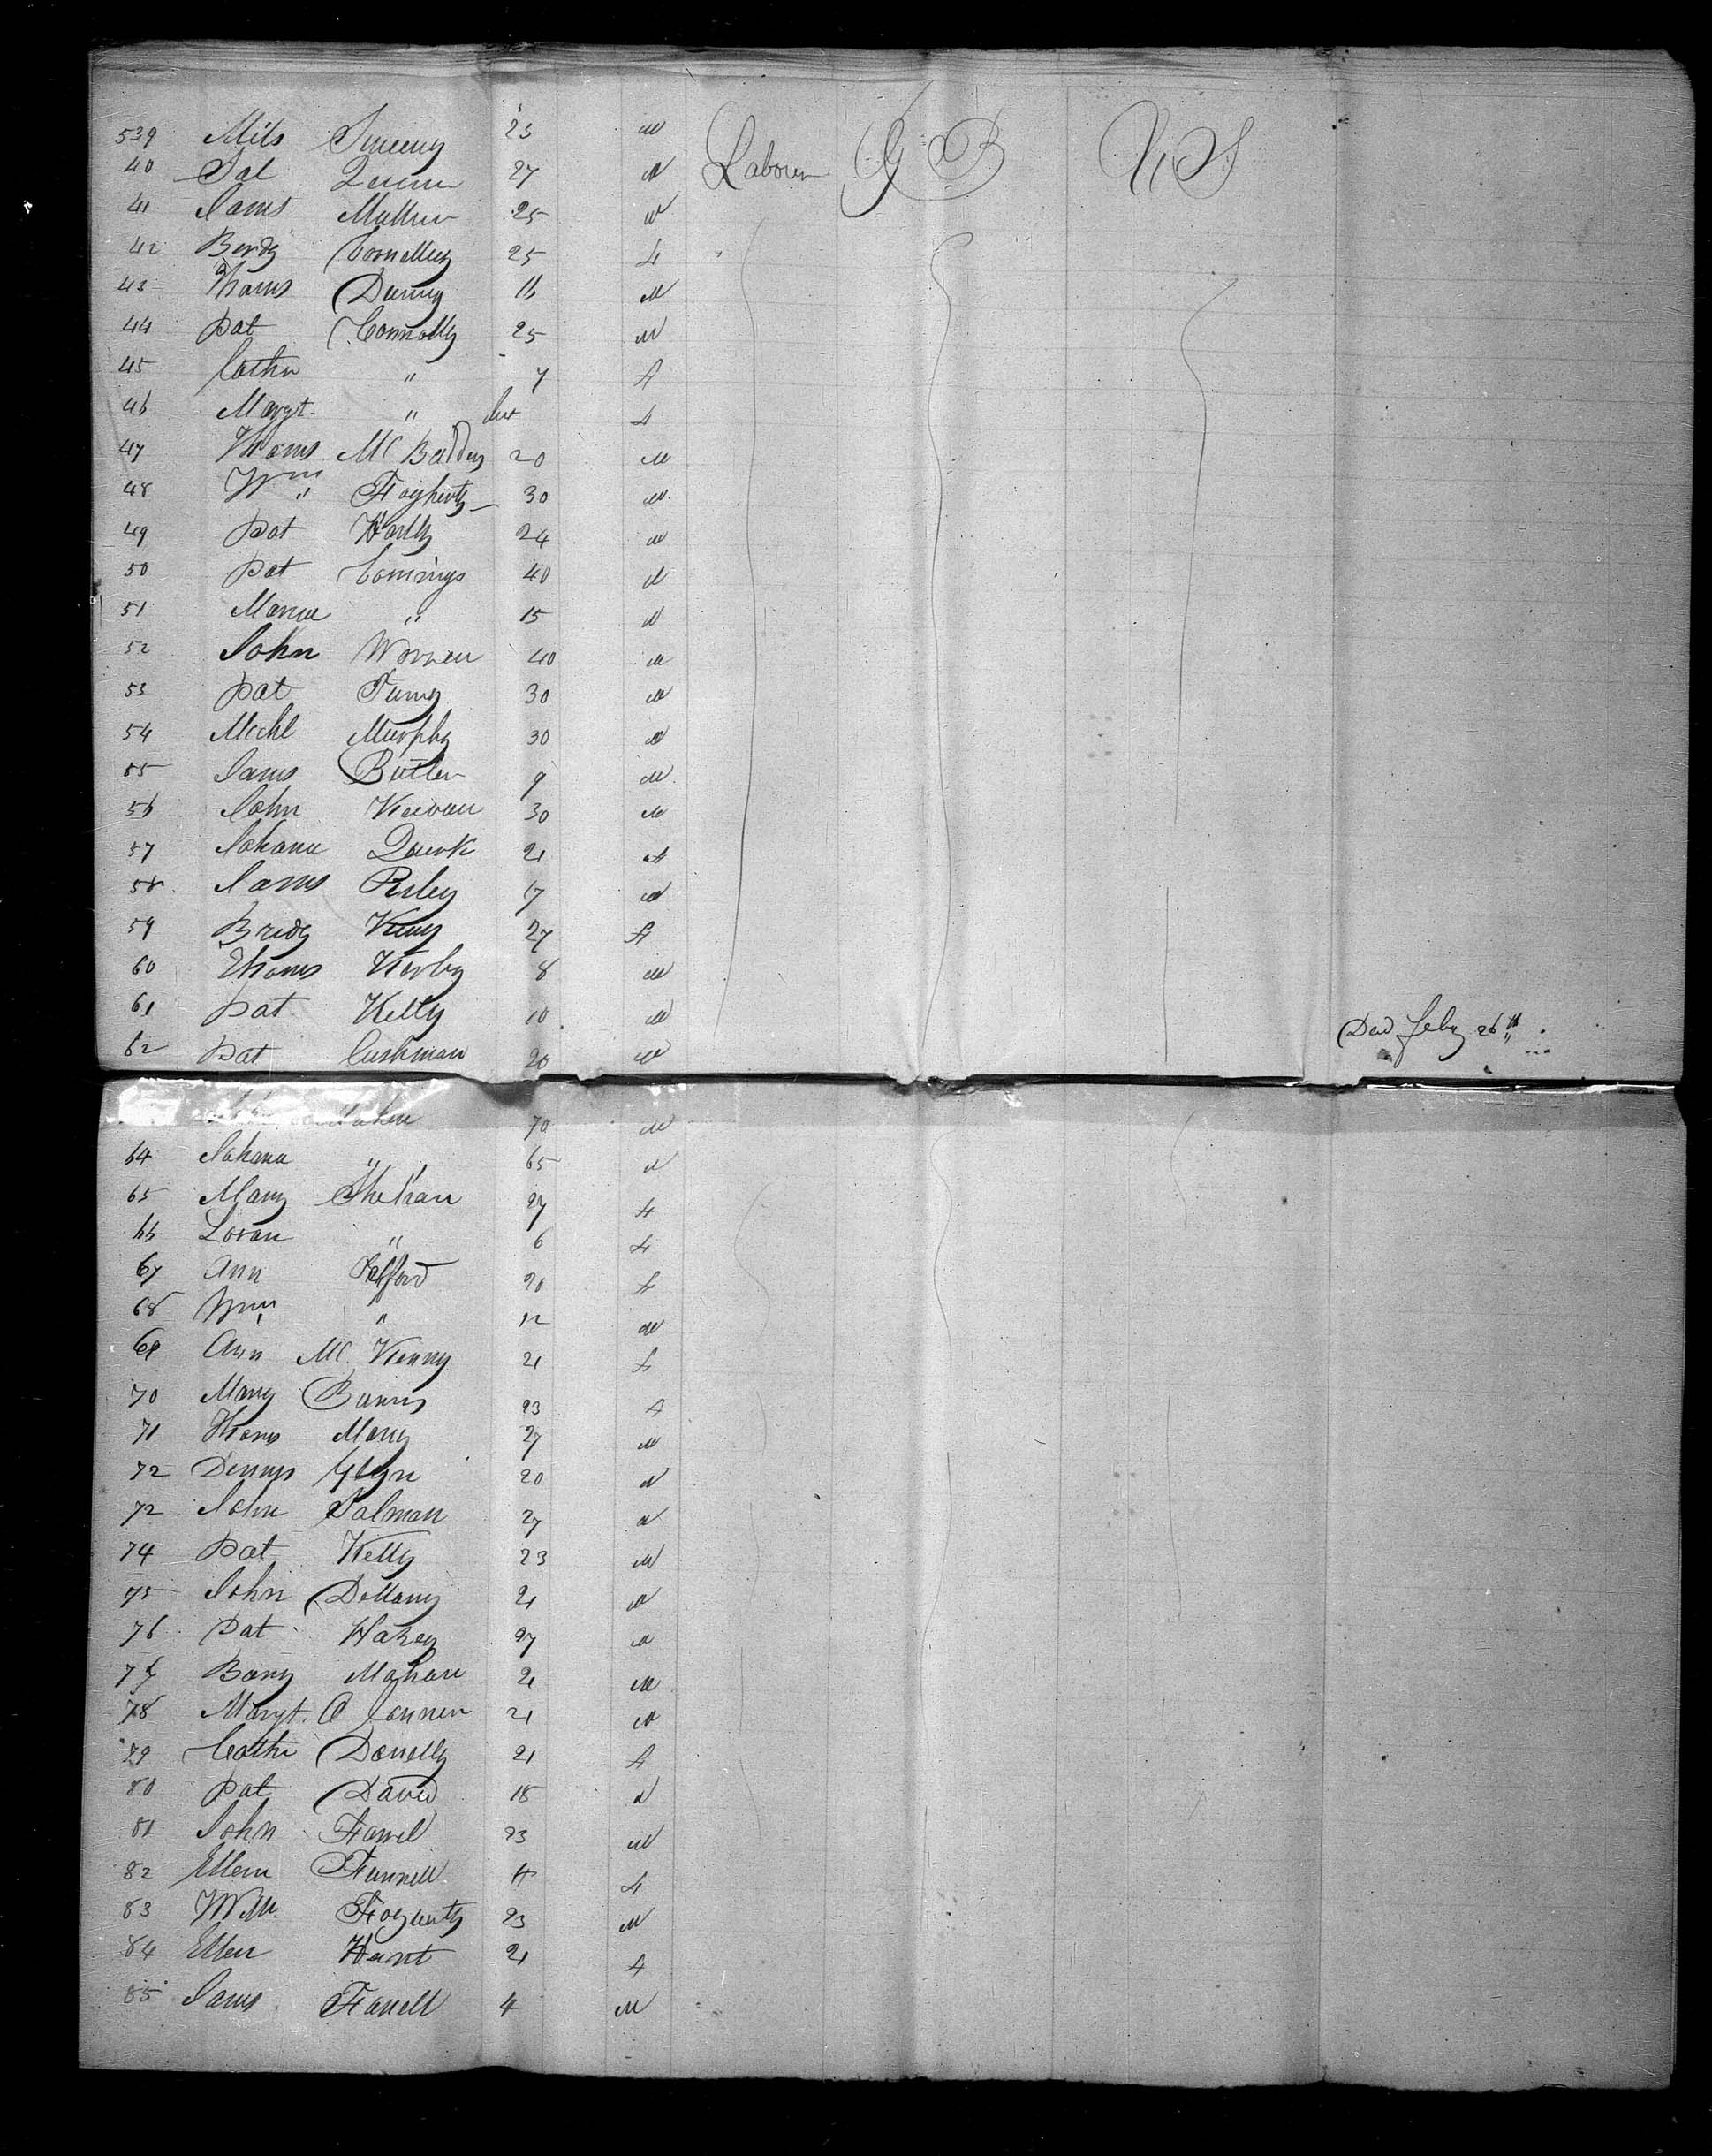 539 Mils Sweeny 23 m Laborer G B U, S
40 Pat 27 m
41 Jams 25 m
42 Bridg Connelly 25 f
43 Thoms Danny 16 m
44 Pat Connolly 25 m
45 Cathn " 7 f
46 Margt. " Inf f
47 Thoms Mc 20 m
48 Wm " Fogherty 30 m
49 Pat 24 m
50 Pat Comings 40 m
51 Maria " 15 m
52 John Warren 40 m
53 Pat 30 m
54 Michl Murphy 30 m
55 Jams Butler 9 m
56 John Keevan 30 m
57 Johana Quirk 21 f
58 Jams Reley 17 m
59 Bridg Keny 27 f
60 Thoms Kerby 8 m
61 Pat Kelly 10 m Died Feby 26th
62 Pat Cushman 20 m
70 m
64 Johana " 65 m
65 Mary Shehan 27 f
66 Loran " 6 f
67 Ann 20 f
68 Wm " 12 m
69 Ann Mc. Kenny 21 f
70 Mary Burns 23 f
71 Thoms Mary 27 m
72 Dennis Glyn 20 m
72 John Salmon 27 m
74 Pat Kelly 23 m
75 John Dellany 21 m
76 Pat 27 m
77 Barny Mahan 21 m
78 Margt. O Conner 21 m
79 Cathn Donelly 21 f
80 Pat David 18 m
81 John Farrell 23 m
82 Ellen Funnell f
83 Wm Fogherty 23 m
84 Ellen Hunt 21 f
85 Jams Farrell 4 m